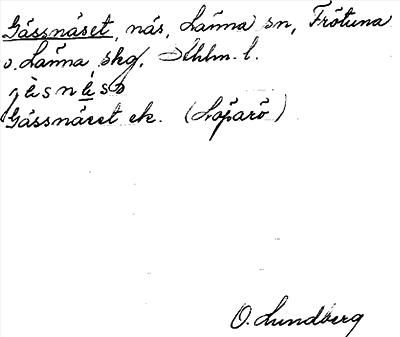 Gåssnäset, näs, Länna sn, Frötuna
o. Länna skg, Sthlm. l.
Gåssnäset ek. (Löparö)
O. Lundberg